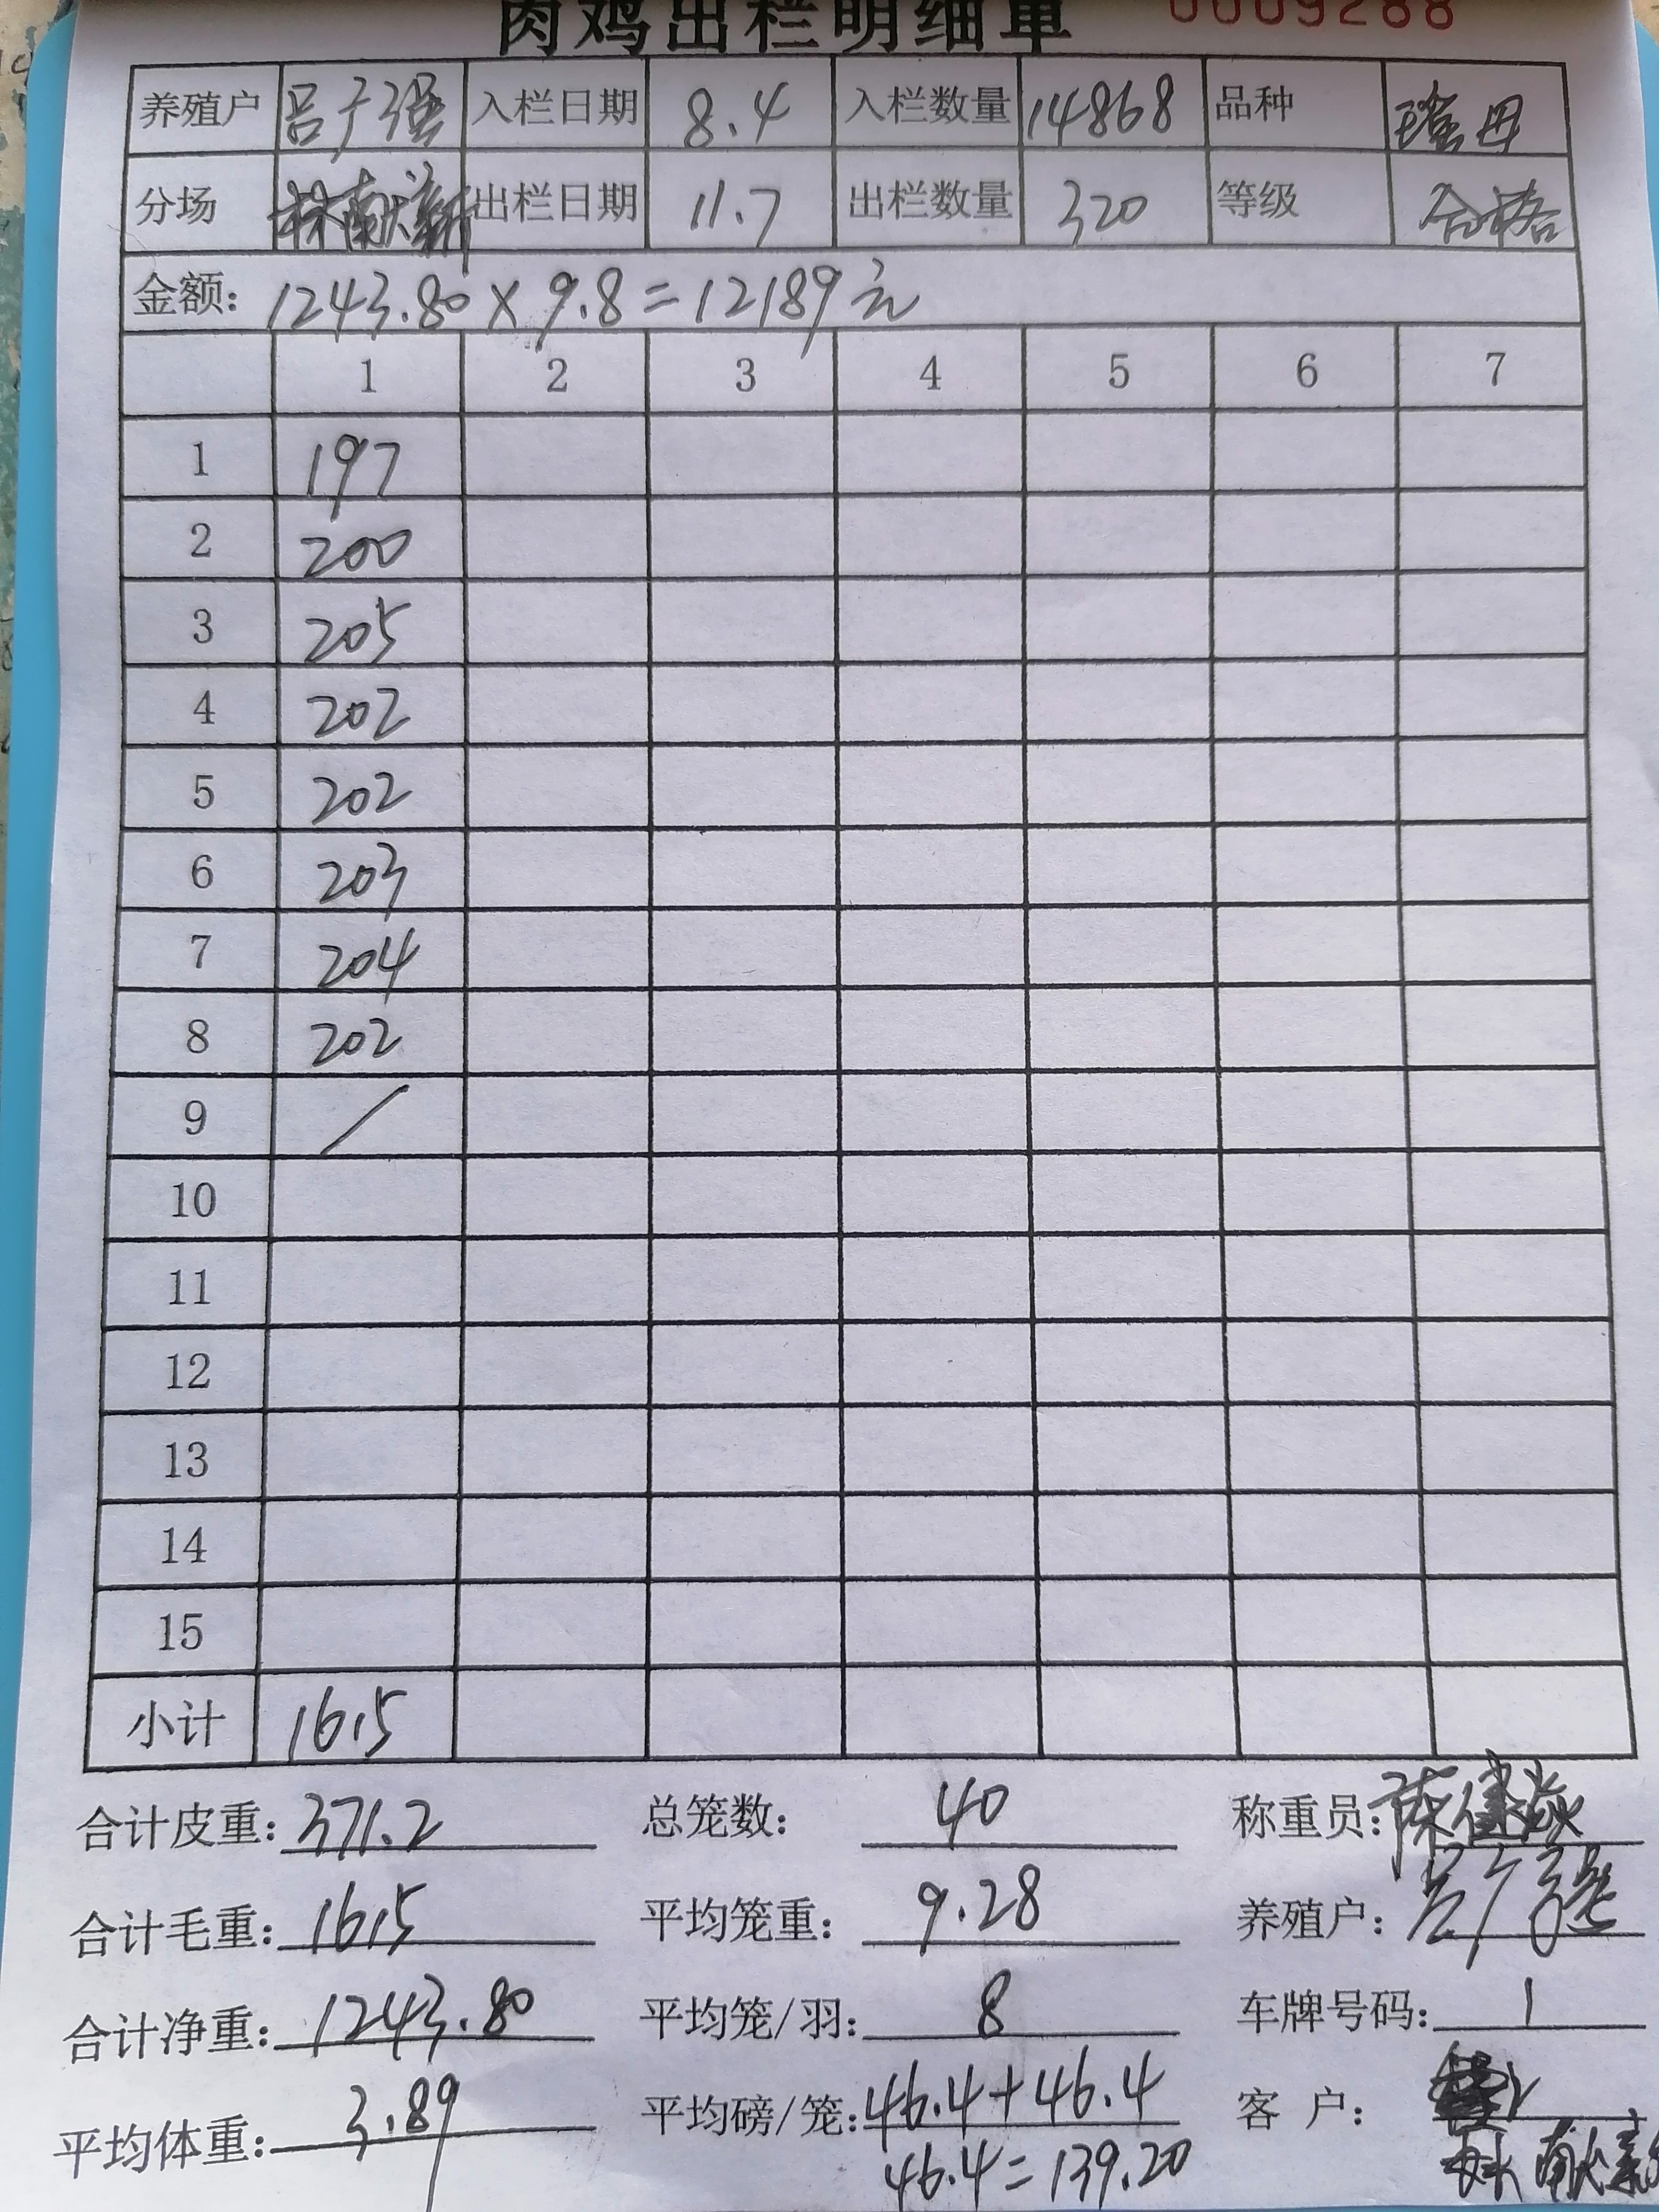 肉鸡出栏明细单 0009288
养殖户 吕广强 入栏日期 8.4 入栏数量 14868 品种 瑶母
分场 林献新 出栏日期 11.7 出栏数量 320 等级 合格
金额: 1243.80 × 9.8 = 12189元
1 2 3 4 5 6 7
1 197
2 200
3 205
4 202
5 202
6 203
7 204
8 202
9 /
10
11
12
13
14
15
小计 1615
合计皮重: 371.2 总笼数: 40 称重员:
合计毛重: 1615 平均笼重: 9.28 养殖户: 吕广强
合计净重: 1243.80 平均笼/羽: 8 车牌号码: 1
平均体重: 3.89 平均磅/笼: 46.4+46.4 客 户:
46.4=139.20 林献新